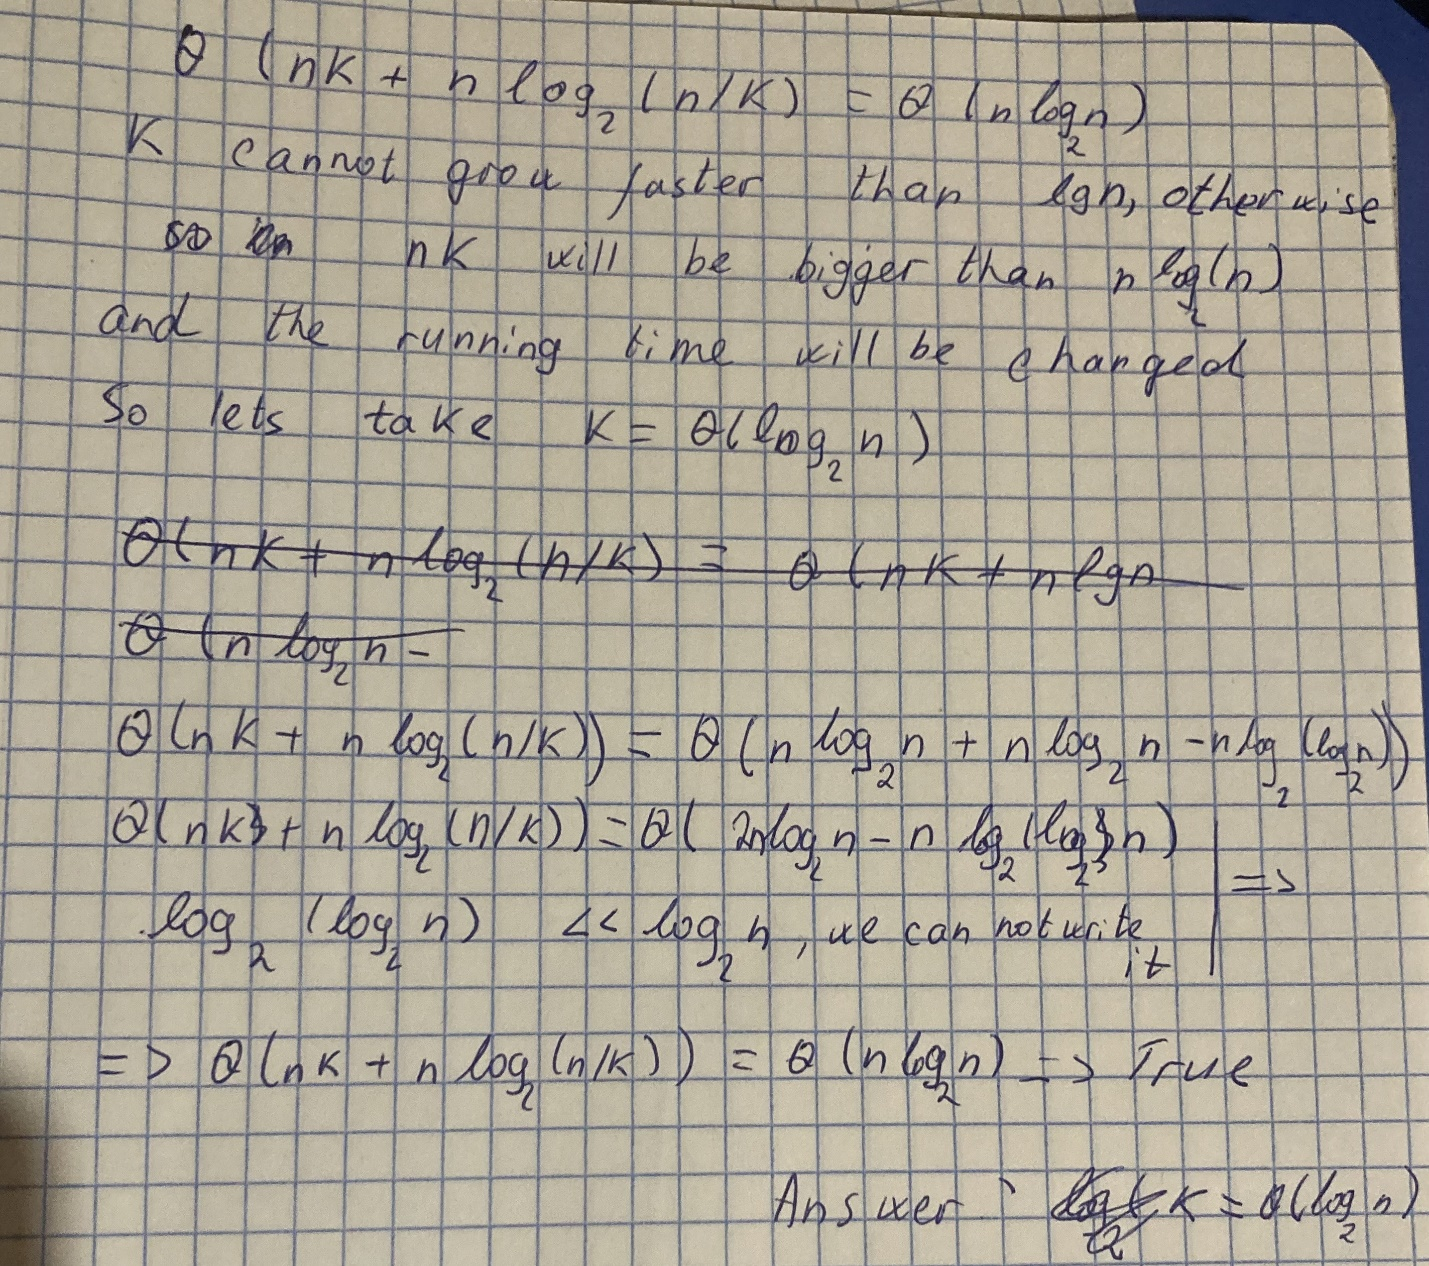 Θ (nk + n log₂ (n/k) = Θ (n log₂n)
K cannot grow faster than lgn, otherwise
so nk will be bigger than n log₂(n)
and the running time will be changed
So lets take K = Θ(log₂ n)
Θ(nk + n log₂ (n/k) = Θ (nk + nlgn
Θ (n log₂n -
Θ(nk + n log₂(n/k)) = Θ (n log₂n + n log₂ n - n log₂ (log₂n))
Θ(nk + n log₂(n/k)) = Θ( 2nlog₂n - n log₂(log₂ n)
log₂ (log₂ n) << log₂ n, we can not write it =>
=> Θ(nk + n log₂(n/k)) = Θ (n log₂n) => True
Answer : K = Θ(log₂ n)